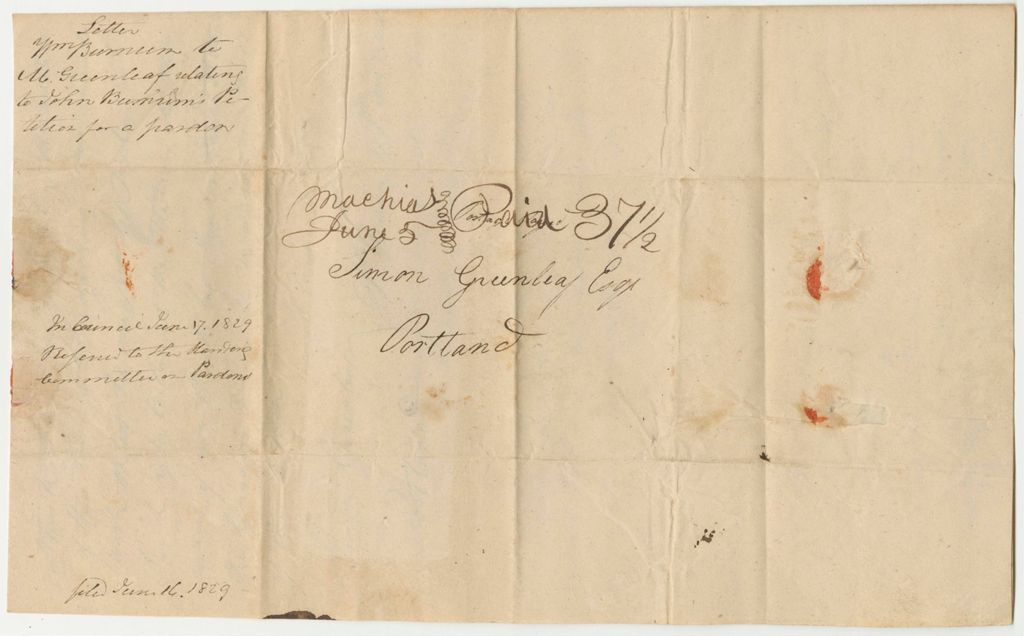 Letter
Wm Burnum to
M. Greenleaf relating
to John Burnum's Pe-
tition for a pardon
Machias Paid 37 1/2
June 5
Simon Greenleaf Esqr
Portland
In Council June 17. 1829
Refered to the Standing
Committee on Pardons
filed June 16. 1829